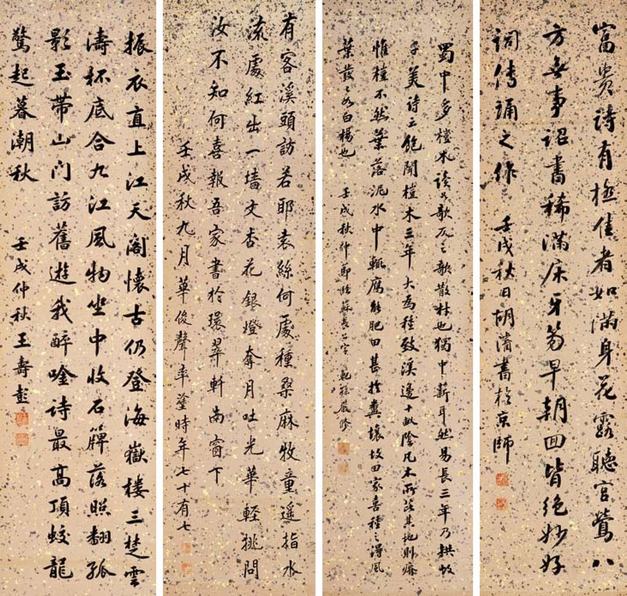 富貴詩有極佳者如滿身花露聽宮鶯八
方無事詔書稀滿床牙笏早朝回皆絕妙好
詞傳誦之作 壬戌秋日胡濬書於京師
蜀中多榿木讀如欹瓦之欹散材也獨中薪耳然易長三年乃拱故
子美詩云飽聞榿木三年大為種致溪邊十畝陰凡木所芘其地則瘠
惟榿不然葉落泥水中輒腐能肥田甚於糞壤故田家喜種之得風
葉發々如白楊也 壬戌秋仲節臨蘇長公 嚴修
有客溪頭訪若耶袁絲何處種桑麻牧童遙指水
流處紅出一墻文杏花銀燈奪月吐光華輕挑問
汝不知何喜報吾家書於環翠軒南窗下
壬戌秋九月華俊聲率塗時年七十有七
振衣直上江天閣懷古仍登海嶽樓三楚雲
濤杯底合九江風物坐中收石簰落照翻孤
影玉帶山門訪舊遊我醉唫詩最高頂蛟龍
驚起暮潮秋 壬戌仲秋王壽彭